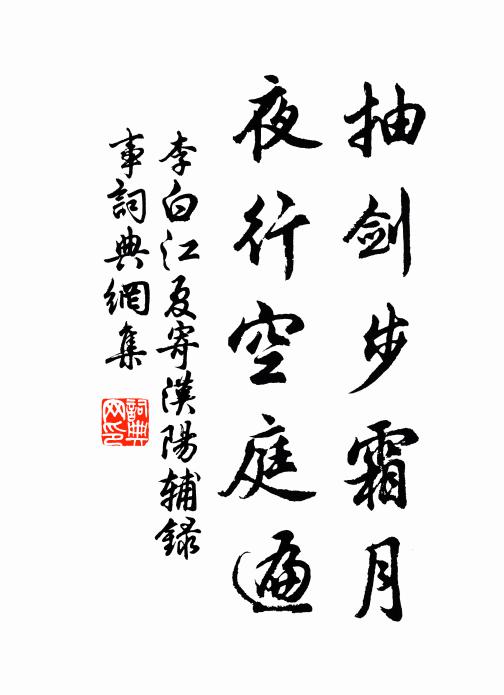 抽剑步霜月
夜行空庭遍
李白江夏寄漢陽辅録
事詞典網集
詞典
网印